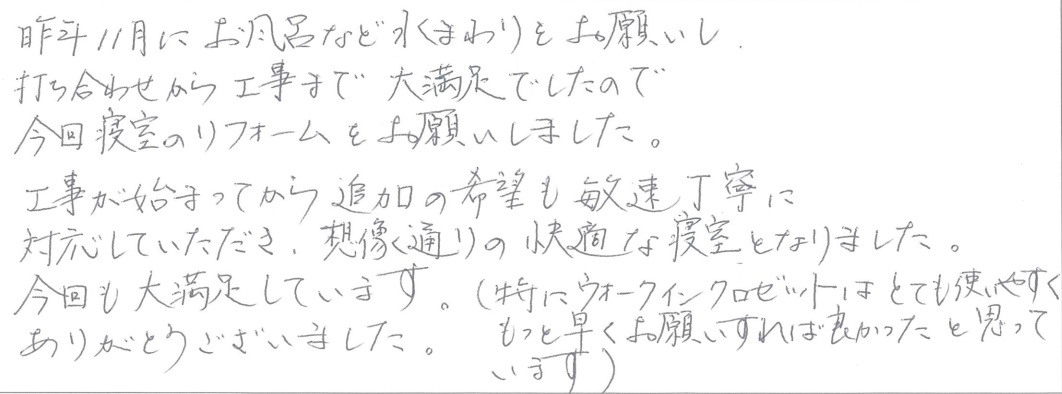 昨年11月にお風呂など水まわりをお願いし、
打ち合わせから工事まで 大満足でしたので
今回寝室のリフォームをお願いしました。
工事が始まってから追加の希望も敏速丁寧に
対応していただき、想像通りの快適な寝室となりました。
今回も大満足しています。(特にウォークインクロゼットはとても使いやすく
ありがとうございました。 もっと早くお願いすれば良かったと思って
います)